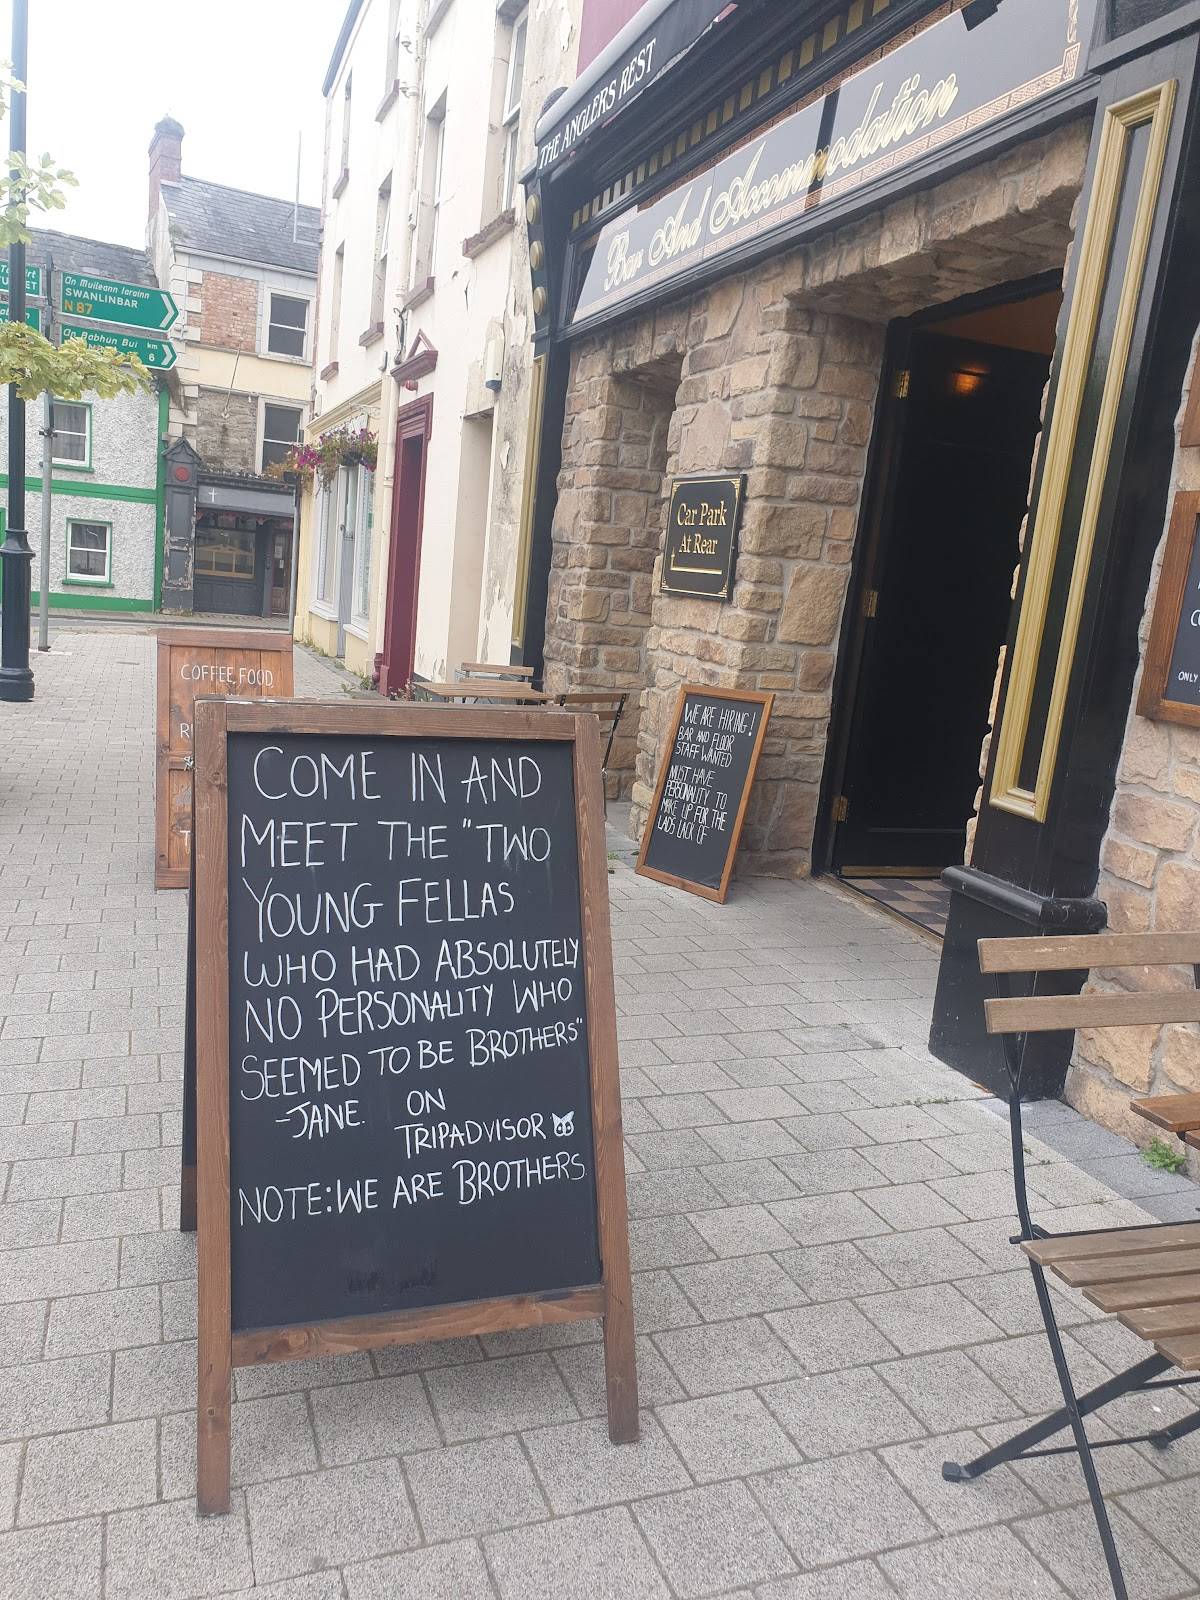 THE ANGLERS REST
Bar And Accommodation
An Muileann Iarainn
SWANLINBAR
N 87
An Bábhún Buí km
6
Car Park
At Rear
COFFEE, FOOD
WE ARE HIRING!
BAR AND FLOOR
STAFF WANTED
MUST HAVE
PERSONALITY TO
MAKE UP FOR THE
LADS LACK OF
COME IN AND
MEET THE "TWO
YOUNG FELLAS
WHO HAD ABSOLUTELY
NO PERSONALITY WHO
SEEMED TO BE BROTHERS"
-JANE. ON
TRIPADVISOR
NOTE: WE ARE BROTHERS
ONLY